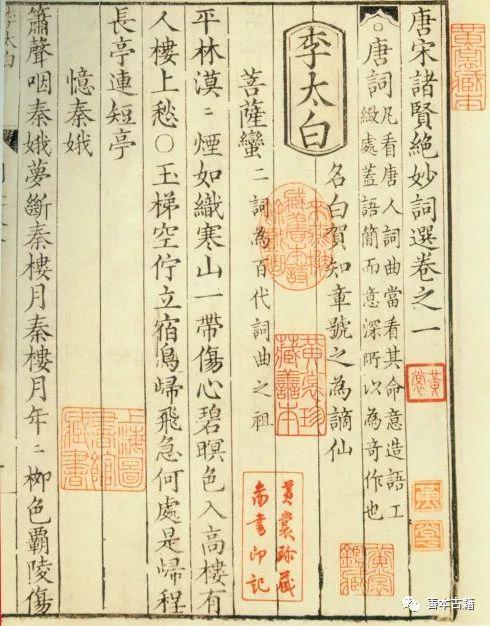 黃裳藏本
唐宋諸賢絶妙詞選卷之一
黃裳
唐詞
凡看唐人詞曲當看其命意造語工
緻處蓋語簡而意深所以為奇作也
李太白
名白賀知章號之為謫仙
黃裳珍藏善本
菩薩蠻
二詞為百代詞曲之祖
黃裳珍藏
善書印記
平林漠〻煙如織寒山一帶傷心碧暝色入高樓有
人樓上愁○玉梯空佇立宿鳥歸飛急何處是歸程
長亭連短亭
上海圖書館藏書
憶秦娥
簫聲咽秦娥夢斷秦樓月秦樓月年〻栁色覇陵傷
李太白
善本古籍